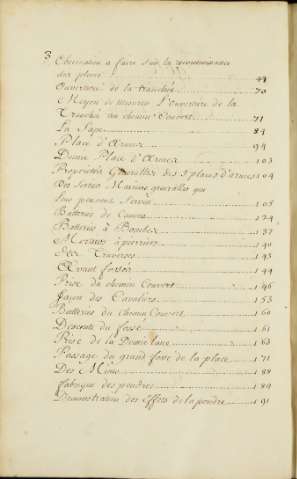 3 Observation a faire sur la reconnoissance
des places 44
Ouverture de la tranchée 70
Moyen de mesurer L'ouverture de la
Tranchée au chemin Couvert 71
La Sape 84
Place d'Armes 94
Demie Place d'Armes 103
Proprietés Generalles des 3 places d'armes 104
Des Maximes generalles qui
peuvent Servir 105
Batteries de Canons 124
Batteries a Bombes 137
Mortiers a pierriers 140
Des Traverses 143
Avant fossés 144
Prise du chemin Couvert 146
des Cavaliers 153
Batteries du chemin Couvert 160
Descente du fossé 161
Prise de la Demie lune 163
Passage du grand fossé de la place 171
Des Mines 188
fabrique des poudres 189
Demonstration des Effets de la poudre 191